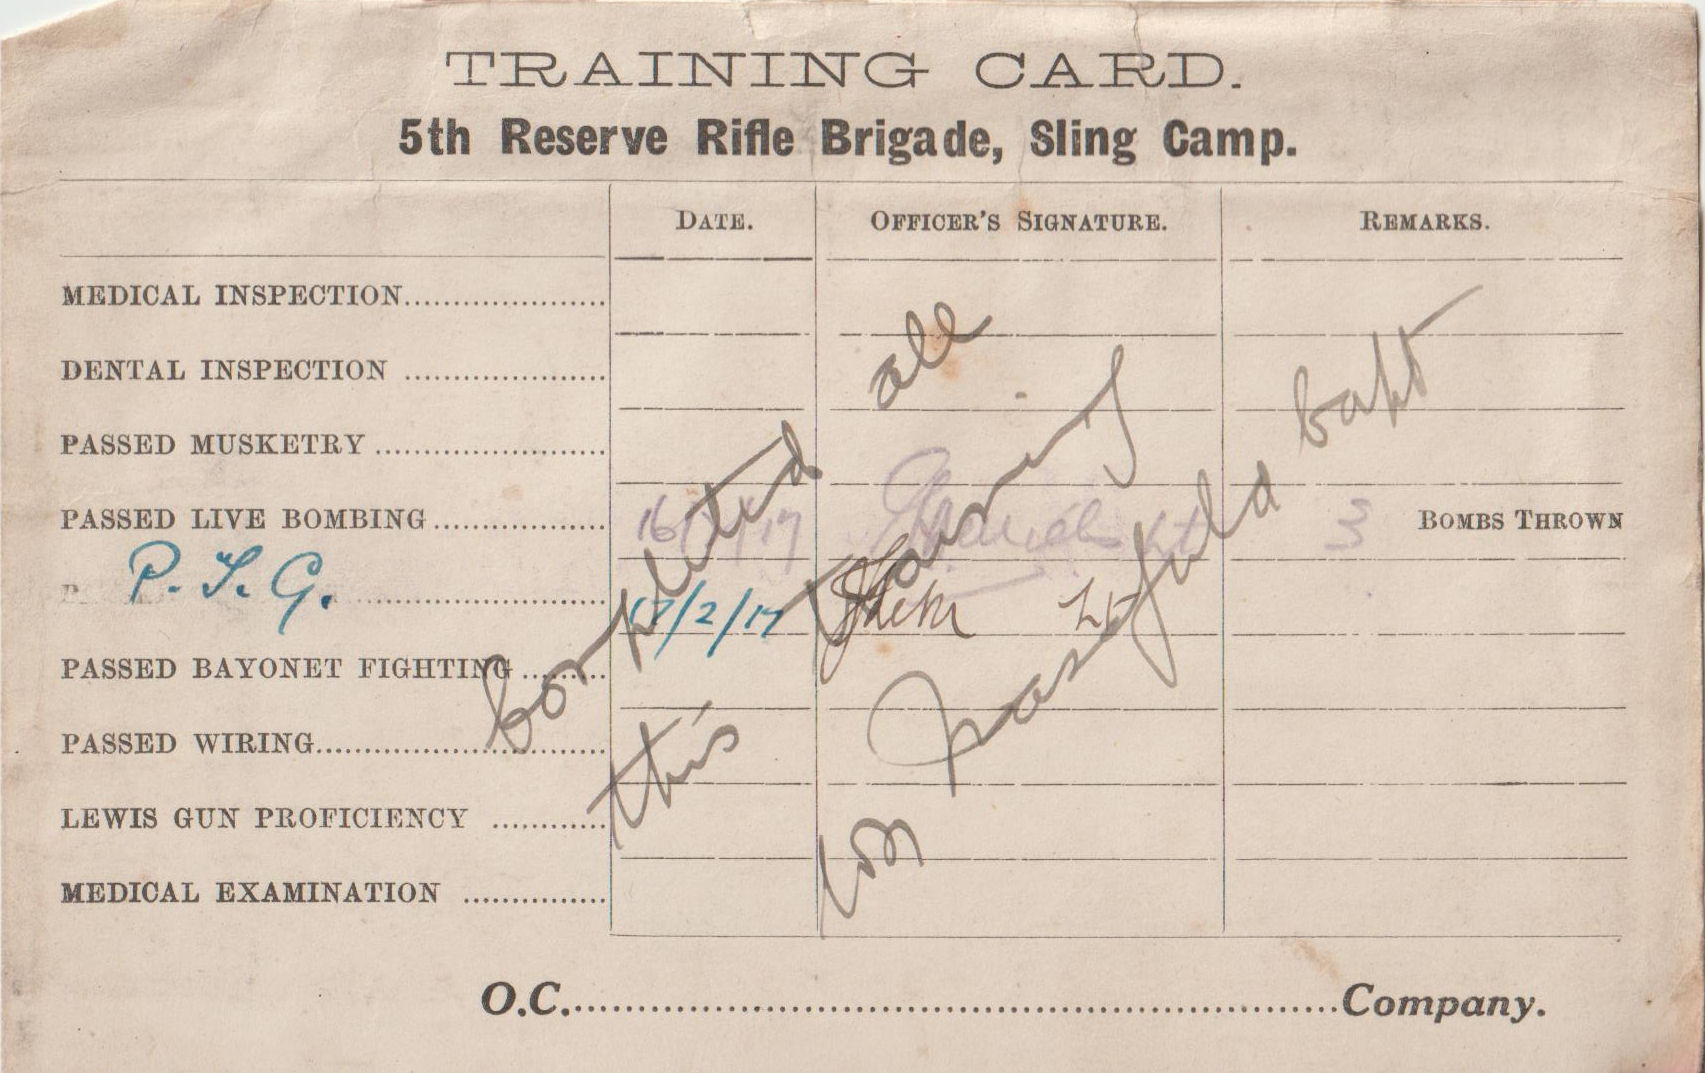 TRAINING CARD.
5th Reserve Rifle Brigade, Sling Camp.
DATE. OFFICER'S SIGNATURE. REMARKS.
MEDICAL INSPECTION....................
DENTAL INSPECTION .....................
PASSED MUSKETRY .......................
PASSED LIVE BOMBING................. 16/ /17 Lt 3 BOMBS THROWN
P. T. G. ......................... 17/2/17 Lt
PASSED BAYONET FIGHTING ........
PASSED WIRING.............................
LEWIS GUN PROFICIENCY ............
MEDICAL EXAMINATION ...............
Completed all
this Training
Capt
O.C...............................................................Company.